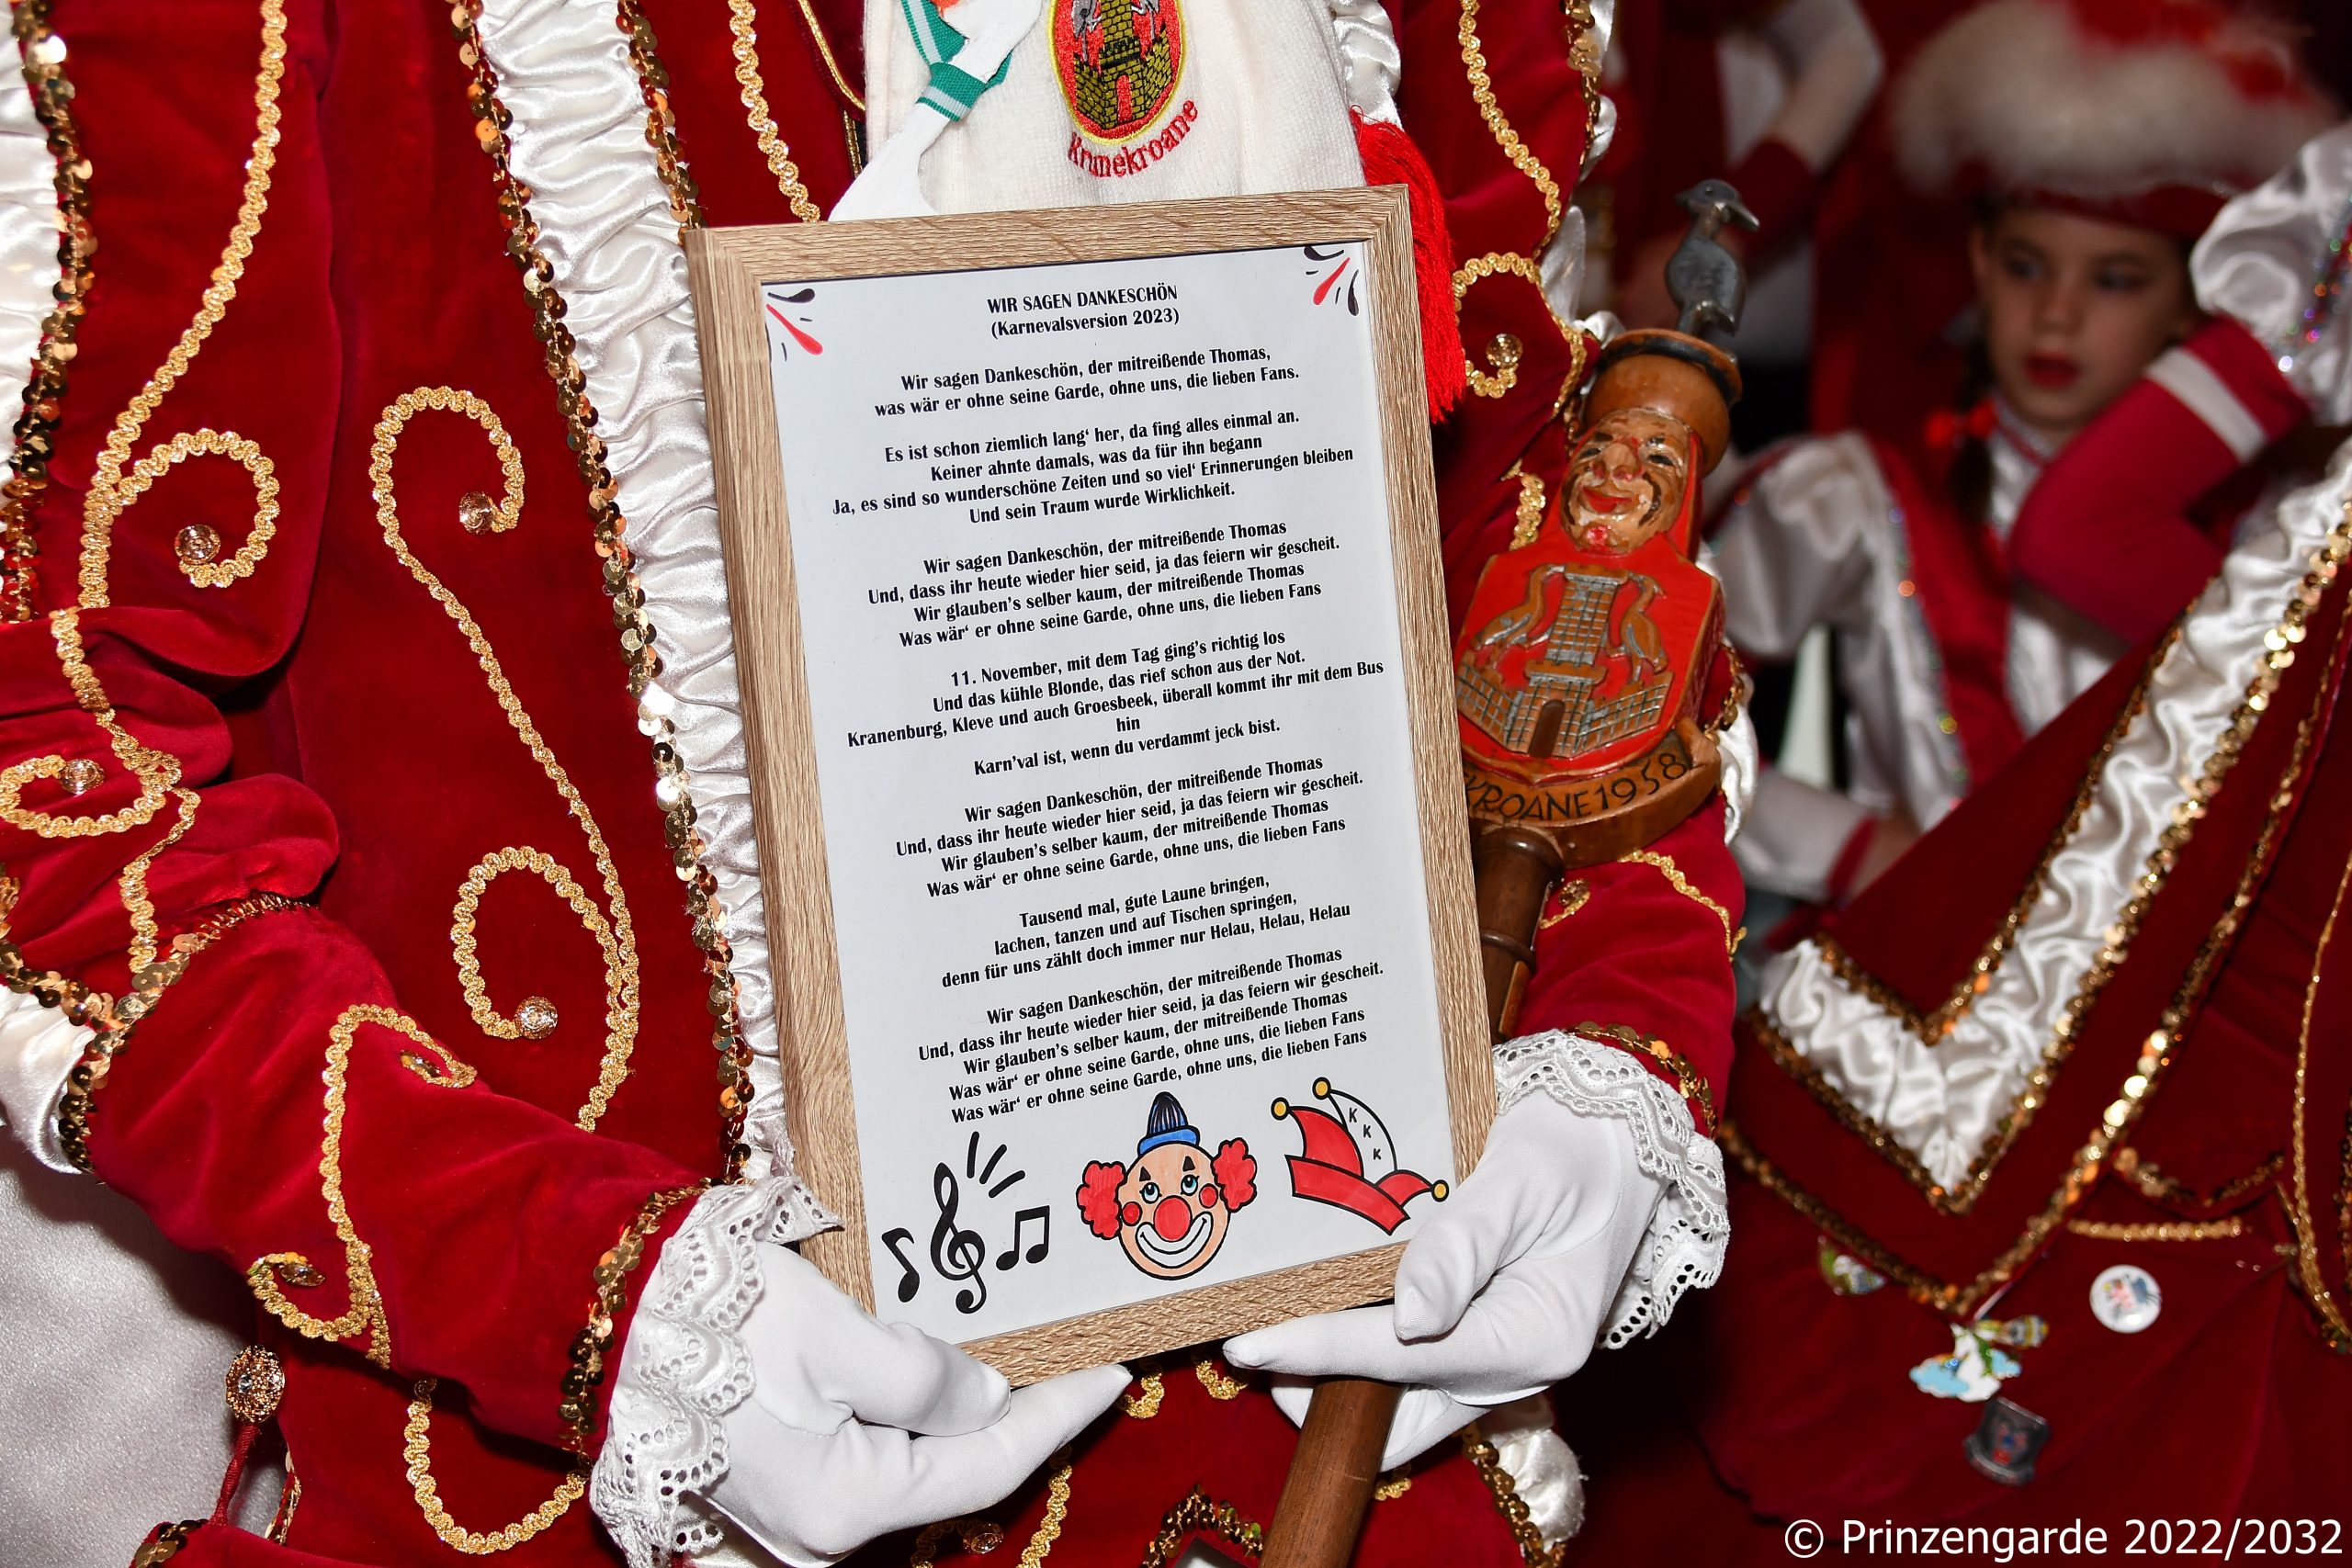 Krunekroane
WIR SAGEN DANKESCHÖN
(Karnevalsversion 2023)
Wir sagen Dankeschön, der mitreißende Thomas,
was wär er ohne seine Garde, ohne uns, die lieben Fans.
Es ist schon ziemlich lang‘ her, da fing alles einmal an.
Keiner ahnte damals, was da für ihn begann
Ja, es sind so wunderschöne Zeiten und so viel‘ Erinnerungen bleiben
Und sein Traum wurde Wirklichkeit.
Wir sagen Dankeschön, der mitreißende Thomas
Und, dass ihr heute wieder hier seid, ja das feiern wir gescheit.
Wir glauben’s selber kaum, der mitreißende Thomas
Was wär‘ er ohne seine Garde, ohne uns, die lieben Fans
11. November, mit dem Tag ging’s richtig los
Und das kühle Blonde, das rief schon aus der Not.
Kranenburg, Kleve und auch Groesbeek, überall kommt ihr mit dem Bus
hin
Karn’val ist, wenn du verdammt jeck bist.
Wir sagen Dankeschön, der mitreißende Thomas
Und, dass ihr heute wieder hier seid, ja das feiern wir gescheit.
Wir glauben’s selber kaum, der mitreißende Thomas
Was wär‘ er ohne seine Garde, ohne uns, die lieben Fans
Tausend mal, gute Laune bringen,
lachen, tanzen und auf Tischen springen,
denn für uns zählt doch immer nur Helau, Helau, Helau
Wir sagen Dankeschön, der mitreißende Thomas
Und, dass ihr heute wieder hier seid, ja das feiern wir gescheit.
Wir glauben’s selber kaum, der mitreißende Thomas
Was wär‘ er ohne seine Garde, ohne uns, die lieben Fans
Was wär‘ er ohne seine Garde, ohne uns, die lieben Fans
K
K
K
KROANE 1958
© Prinzengarde 2022/2032